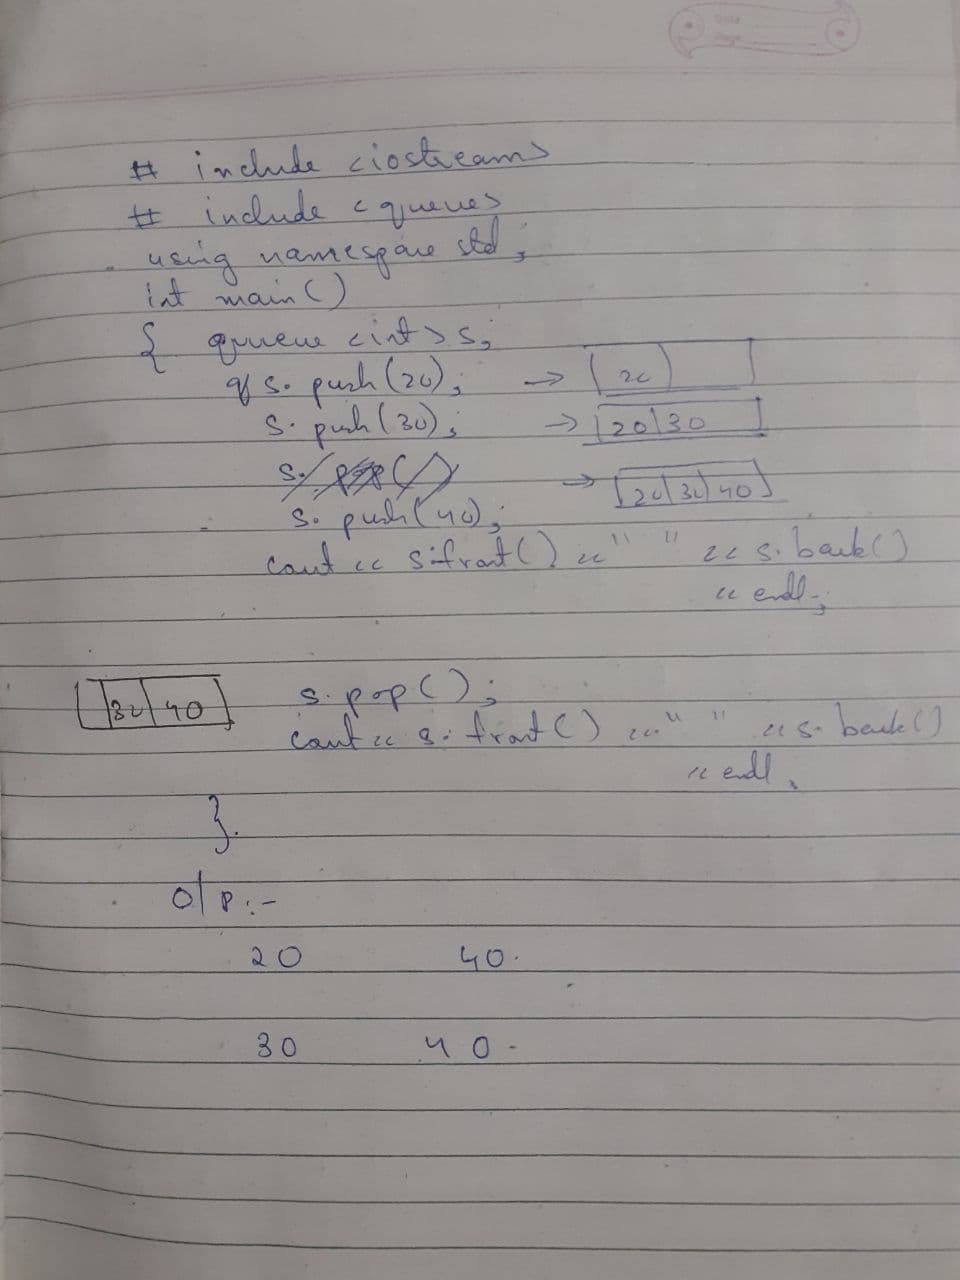 # include <iostream>
# include <queue>
using namespace std;
int main()
{ queue <int> s;
s. push(20); → 20
s. push(30); → 20|30
s. push(40); → 20|30|40
cout << s.front() << " " << s. back()
<< endl;
30|40 s. pop();
cout << s. front() << " " << s. back()
<< endl;
}.
o/p :-
20 40.
30 40 -